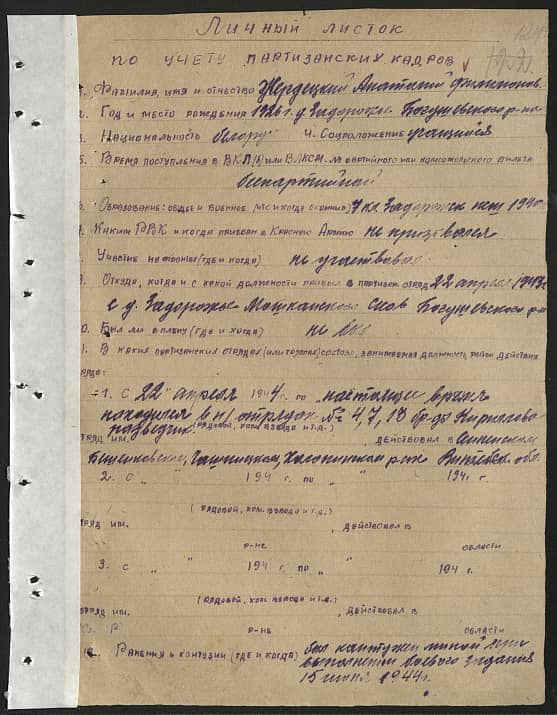 Личный листок
по учету партизанских кадров
Фамилия, имя и отчество Жердецкий Анатолий Филимонов.
Год и место рождения 1926 г. д. Задорожье Богушевского р-на
Национальность белорус 4. Соцположение учащийся
Время поступления в ВКП(б) или ВЛКСМ. № партийного или комсомольского билета
беспартийный
Образование: общее и военное (что и когда окончил) 7 кл. Задорожск 1940
Каким РВК и когда призван в Красную Армию не призывался
Участие на фронте (где и когда) не участвовал
Откуда, когда и с какой должности прибыл в партизан. отряд 22 апреля
с д. Задорожье Богушевского р-на
0. Был ли в плену (где и когда) не был
1. В каких партизанских отрядах (или группах) состоял, занимаемая должность, район действия
ряда:
1. С 22" апреля 1944 г. по „настоящее время
находился в п/отрядах № 4, 7, 13 бр-ды Кирилова
разведчик (рядовой, ком. взвода и т.д.)
тряд им. действовал в Сенненском
Бешенковском, Витебск. обл.
2. С „ " 194 г. по „ " 194 г.
(рядовой, ком. взвода и т.д.)
тряд им. , действовал в
р-не области
3. С „ " 194 г. по „ " 194 г.
(рядовой, ком. взвода и т.д.)
отряд им. , действовал в
р-не области
Ранения и контузии (где и когда) был контужен миной при
выполнении боевого задания
15 июня 1944 г.